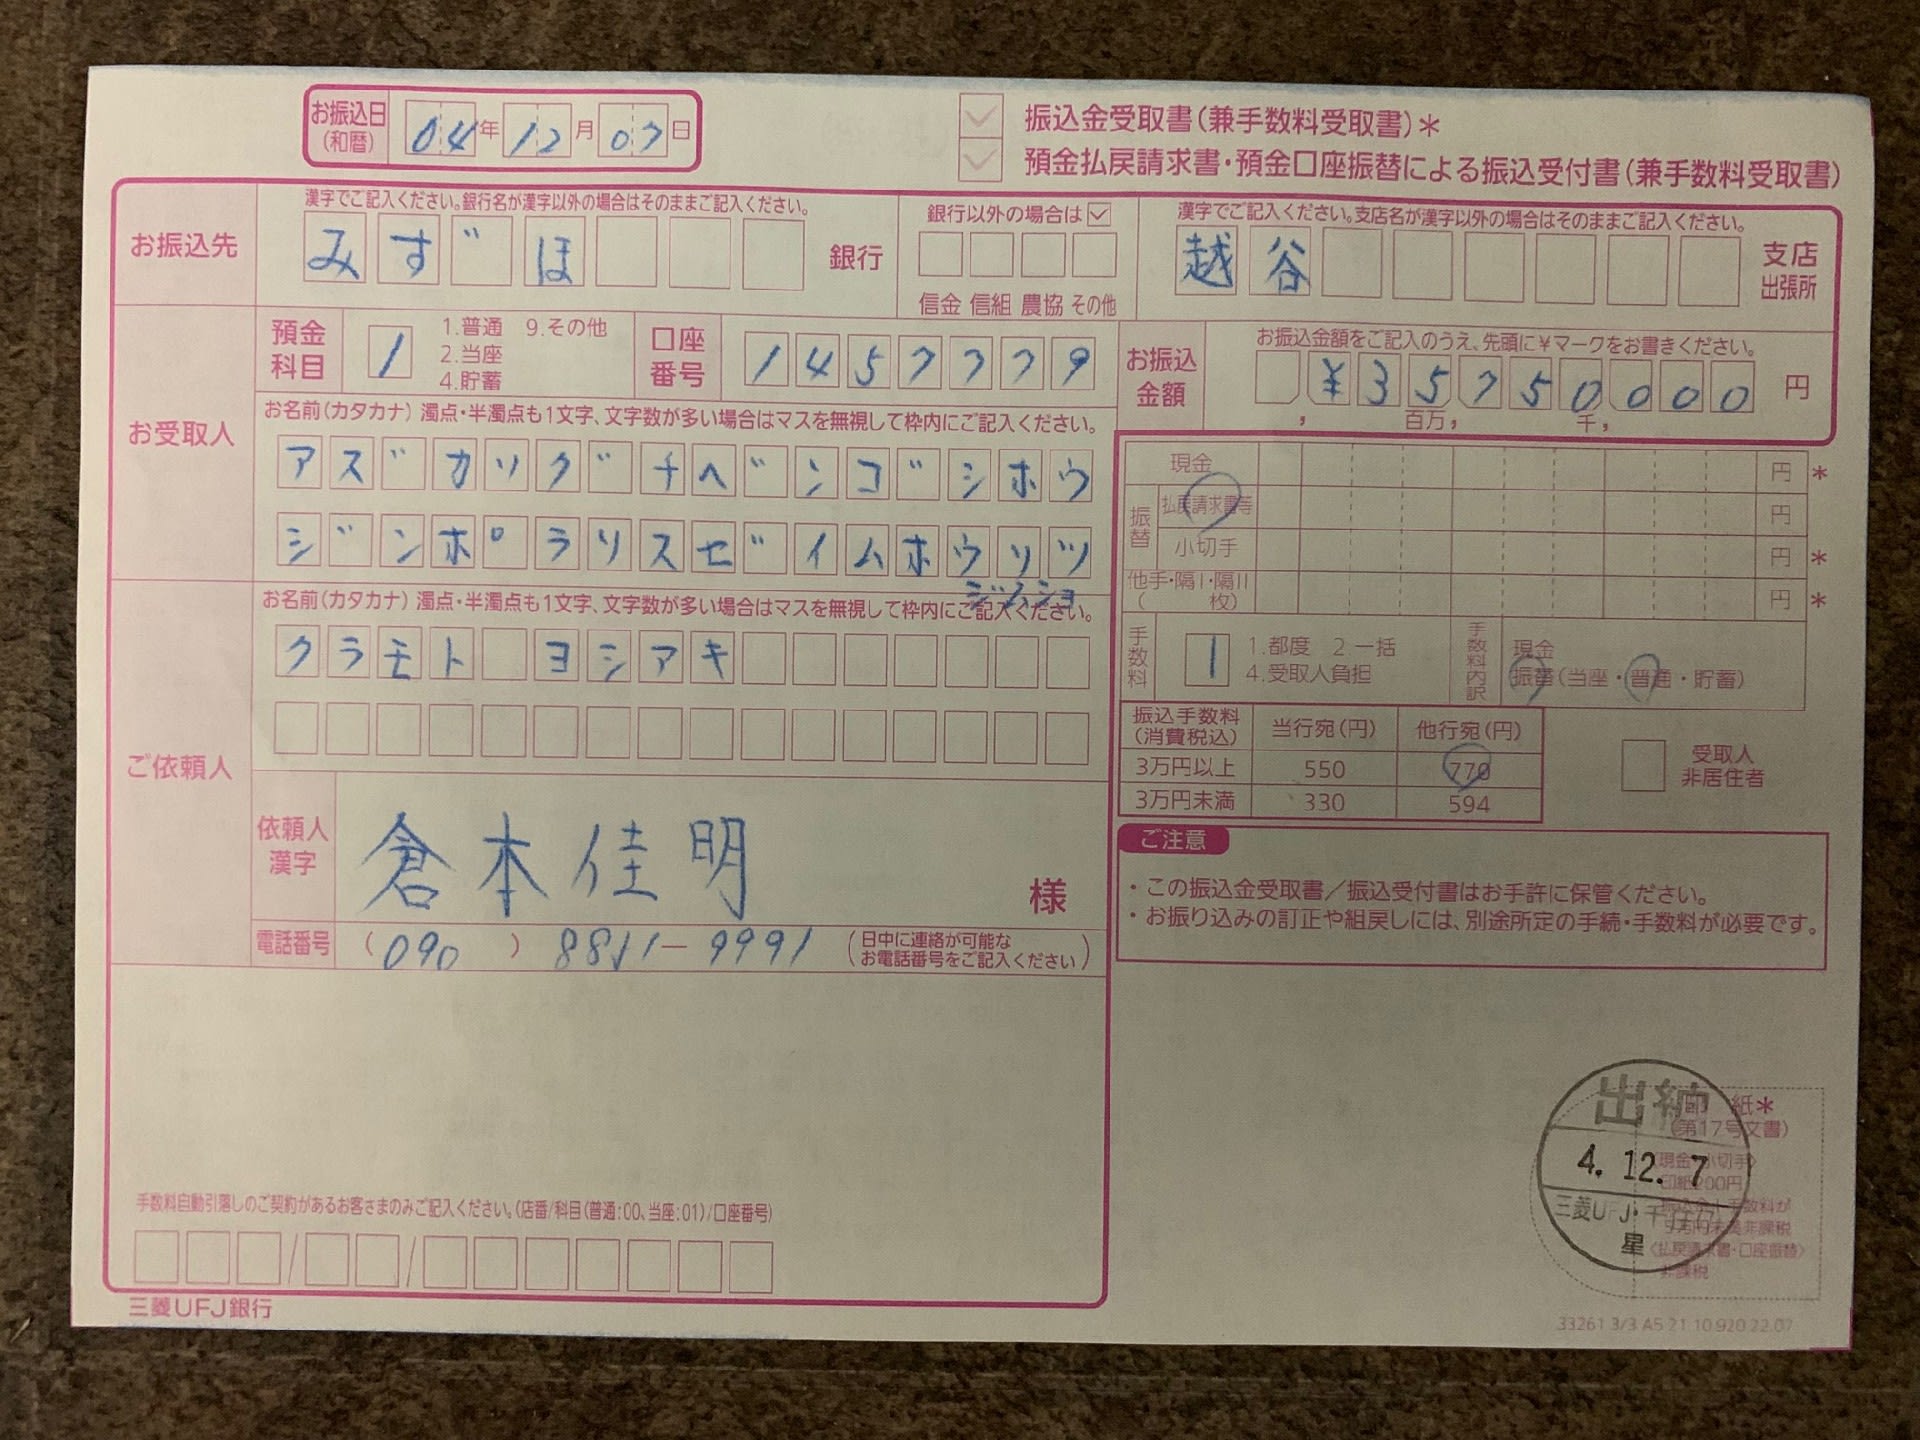 お振込日
(和暦)
04年12月07日
振込金受取書(兼手数料受取書)＊
預金払戻請求書・預金口座振替による振込受付書(兼手数料受取書)
お振込先
漢字でご記入ください。銀行名が漢字以外の場合はそのままご記入ください。
みすﾞほ 銀行
銀行以外の場合は
信金 信組 農協 その他
漢字でご記入ください。支店名が漢字以外の場合はそのままご記入ください。
越谷 支店
出張所
お受取人
預金
科目
1
1.普通 9.その他
2.当座
4.貯蓄
口座
番号
お振込
金額
お振込金額をご記入のうえ、先頭に￥マークをお書きください。
¥35750000 円
百万, 千,
お名前(カタカナ) 濁点・半濁点も1文字、文字数が多い場合はマスを無視して枠内にご記入ください。
アスﾞカソクﾞチヘﾞンコﾞシホウ
シﾞンホﾟラリスセﾞイムホウリツ
ジムショ
ご依頼人
お名前(カタカナ) 濁点・半濁点も1文字、文字数が多い場合はマスを無視して枠内にご記入ください。
クラモト ヨシアキ
依頼人
漢字
倉本佳明 様
電話番号
(090) 8811-9991
(日中に連絡が可能な
お電話番号をご記入ください)
現金 円 ＊
振替
払戻請求書等 円
小切手 円 ＊
他手・隔Ⅰ・隔Ⅱ
( 枚) 円 ＊
手数料
1
1.都度 2.一括
4.受取人負担
手数料内訳
現金
振替(当座・普通・貯蓄)
振込手数料
(消費税込) 当行宛(円) 他行宛(円)
3万円以上 550 770
3万円未満 330 594
受取人
非居住者
ご注意
・この振込金受取書／振込受付書はお手許に保管ください。
・お振り込みの訂正や組戻しには、別途所定の手続・手数料が必要です。
手数料自動引落しのご契約があるお客さまのみご記入ください。(店番/科目(普通:00、当座:01)/口座番号)
三菱UFJ銀行
出納
4.12.7
三菱UFJ・千住
星
印 紙＊
(第17号文書)
33261 3/3 A5 21.10.920 22.07